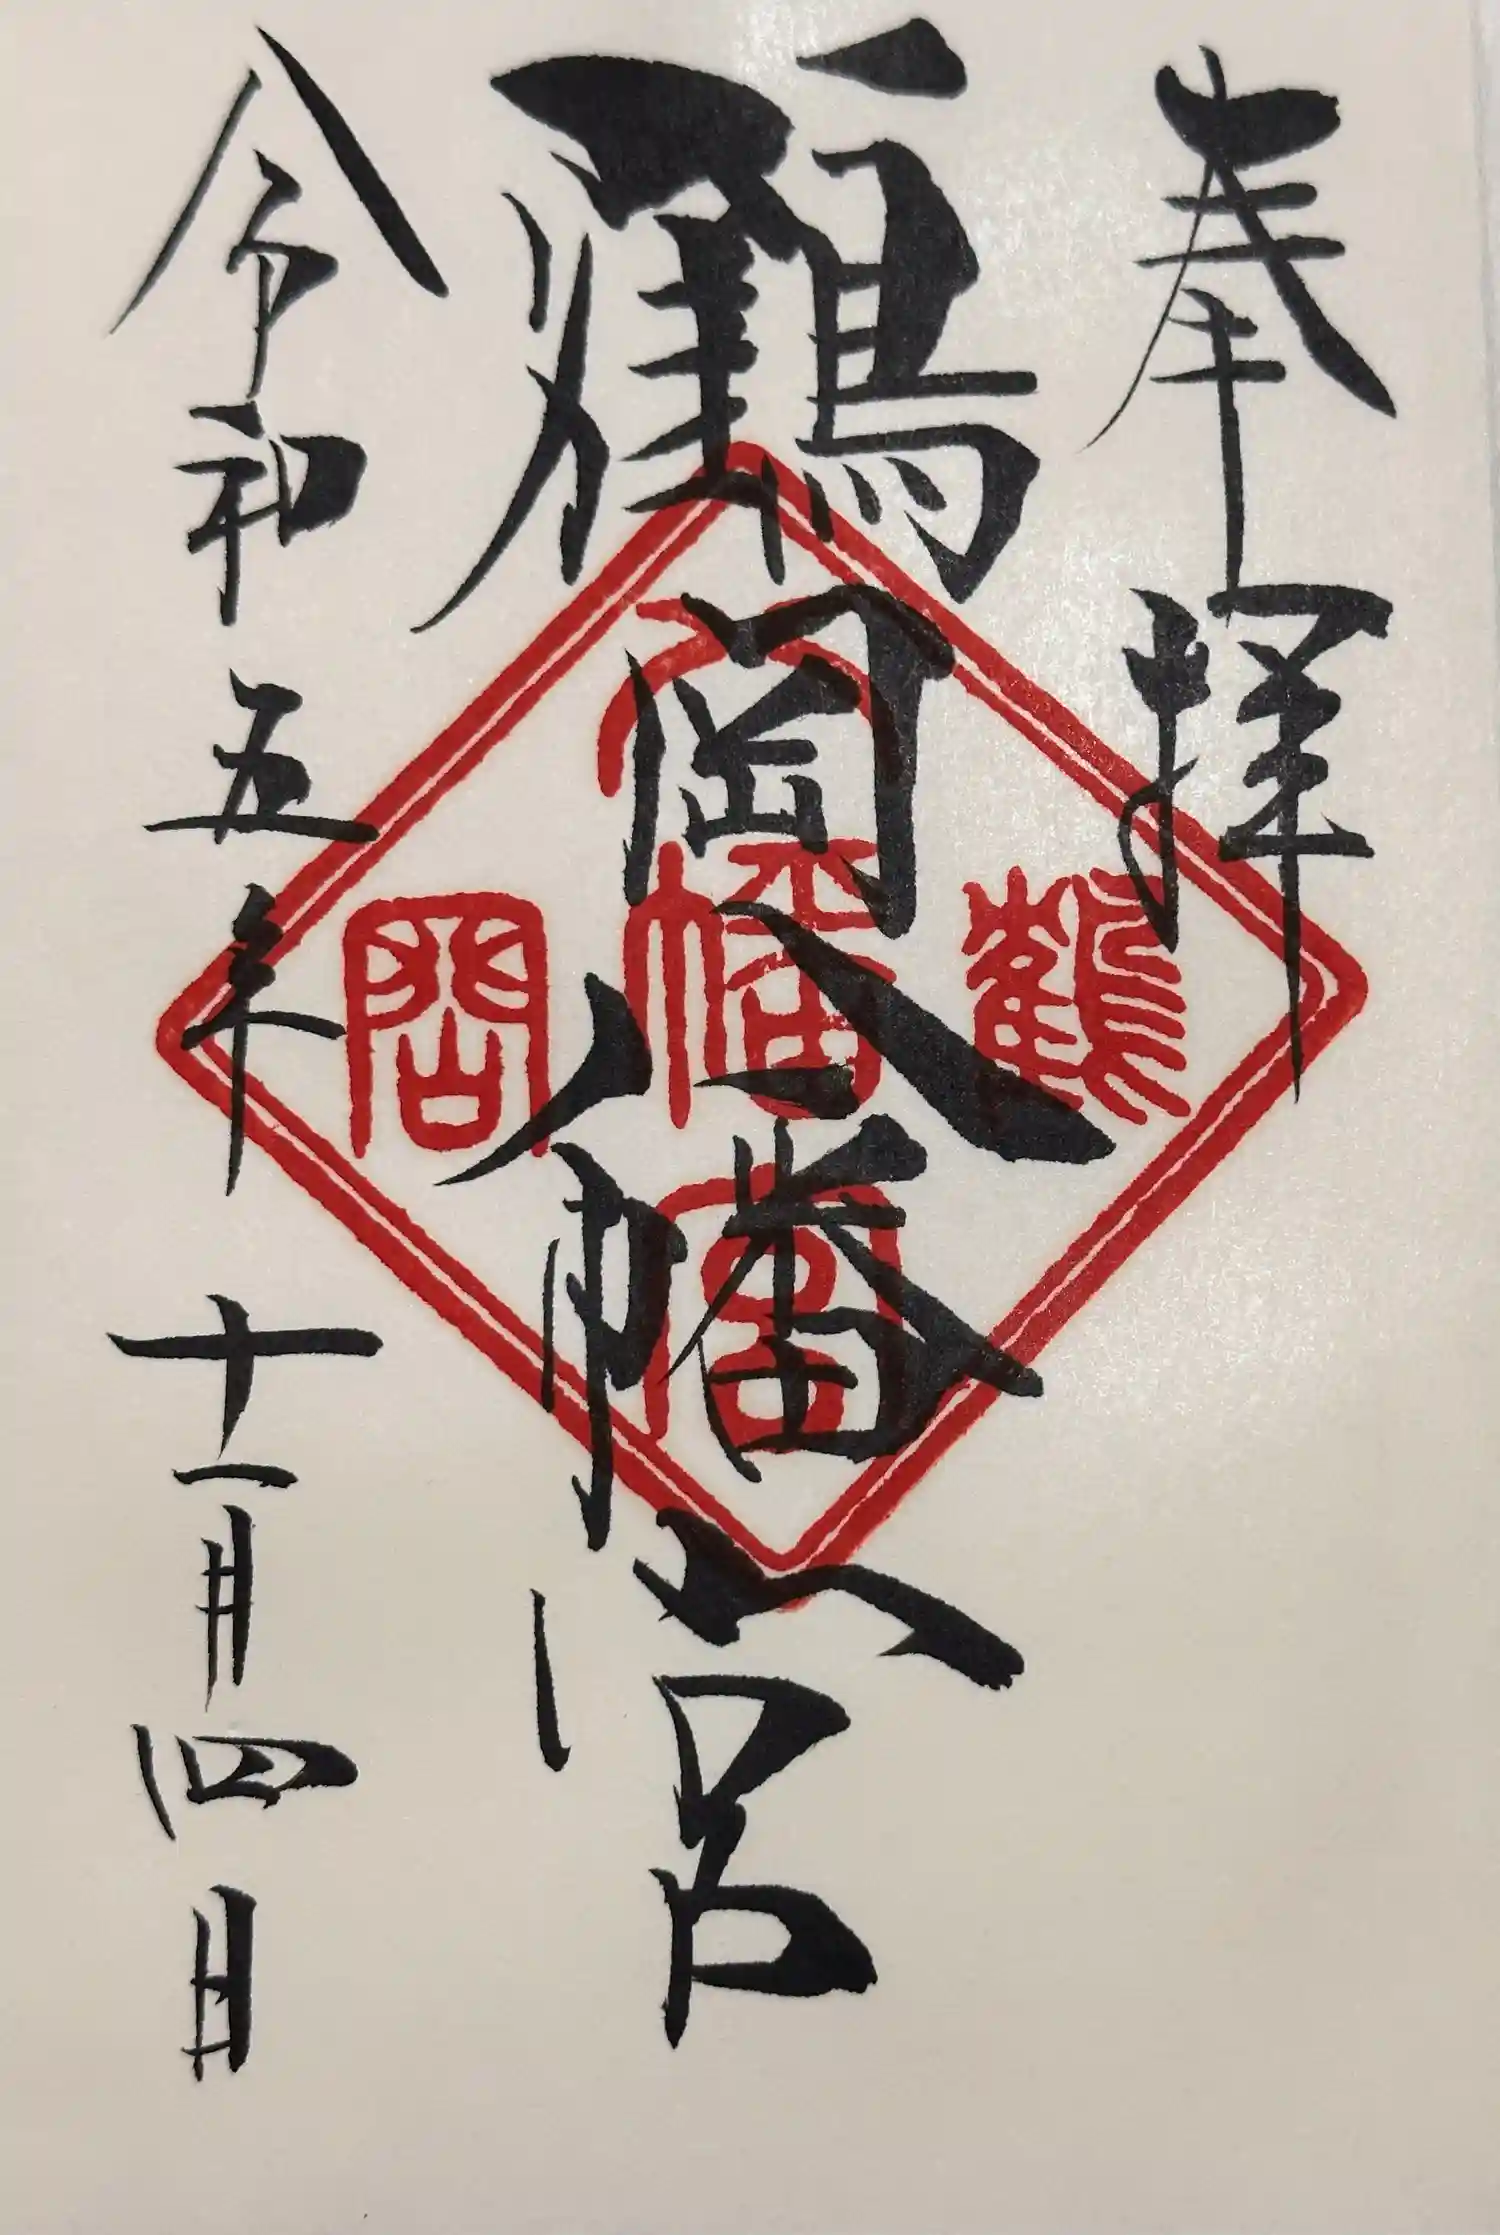 奉拝
鶴岡八幡宮
令和五年十一月四日
鶴
八
幡
宮
岡